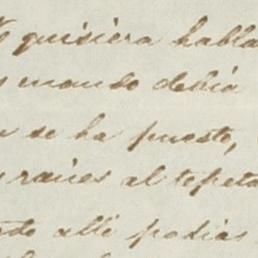 quisiera habla
mando decia
se ha puesto,
raices al tepeta
allí podias